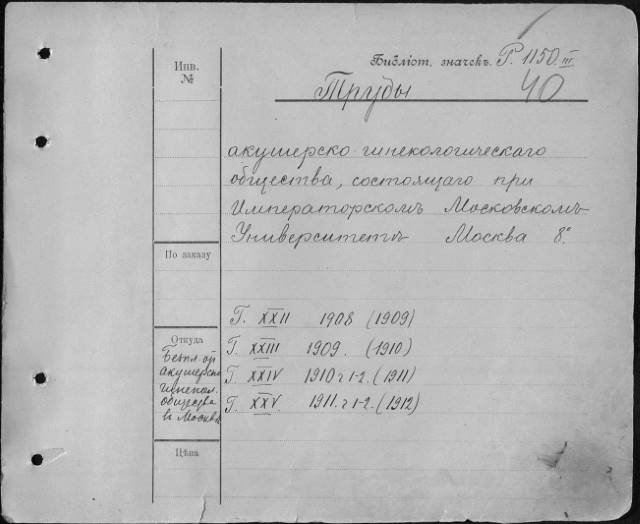 Инв. №
Библіот. значекъ. Р. 1150 III
40
Труды
акушерско гинекологическаго
общества, состоящаго при
Императорскомъ Московскомъ
Университетѣ Москва 8º
По заказу
Г. XXII 1908 (1909)
Г. XXIII 1909. (1910)
Г. XXIV 1910 ч 1-2. (1911)
Г. XXV. 1911. ч 1-2. (1912)
Откуда
Безпл. от
акушерско
гинекол.
общества
въ Москвѣ
Цѣна